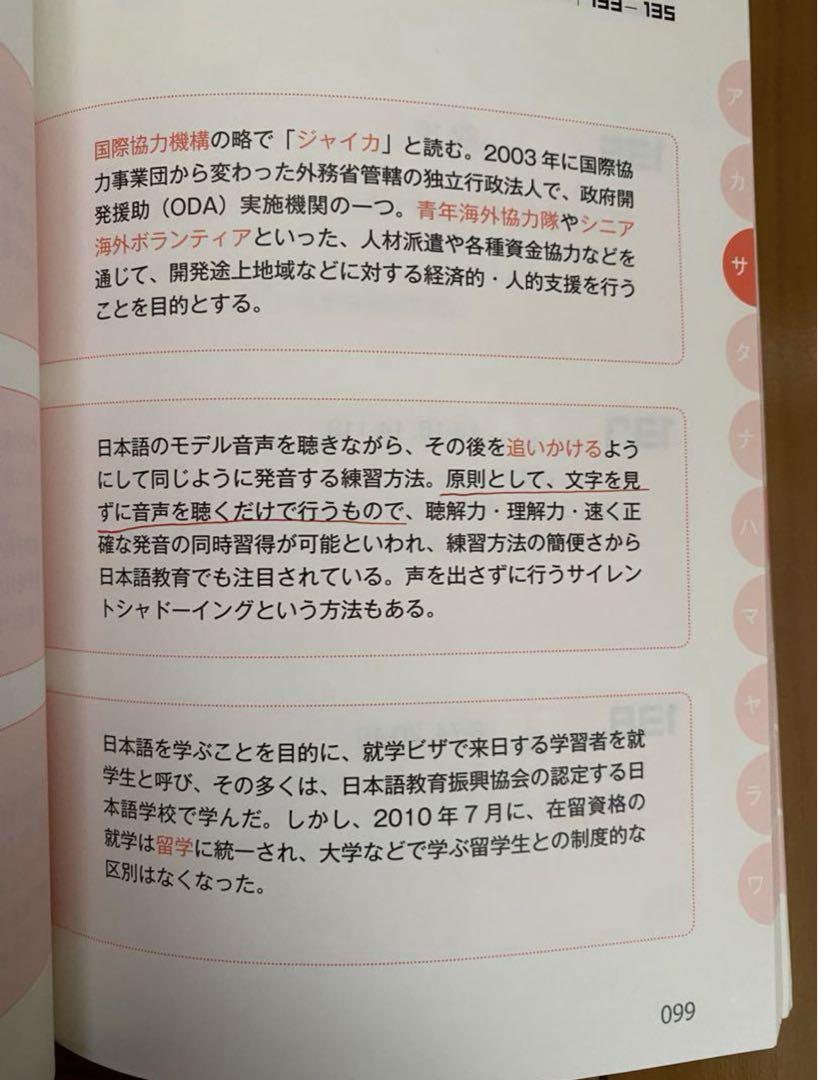 133－135
国際協力機構の略で「ジャイカ」と読む。2003年に国際協
力事業団から変わった外務省管轄の独立行政法人で、政府開
発援助（ODA）実施機関の一つ。青年海外協力隊やシニア
海外ボランティアといった、人材派遣や各種資金協力などを
通じて、開発途上地域などに対する経済的・人的支援を行う
ことを目的とする。
日本語のモデル音声を聴きながら、その後を追いかけるよう
にして同じように発音する練習方法。原則として、文字を見
ずに音声を聴くだけで行うもので、聴解力・理解力・速く正
確な発音の同時習得が可能といわれ、練習方法の簡便さから
日本語教育でも注目されている。声を出さずに行うサイレン
トシャドーイングという方法もある。
日本語を学ぶことを目的に、就学ビザで来日する学習者を就
学生と呼び、その多くは、日本語教育振興協会の認定する日
本語学校で学んだ。しかし、2010年7月に、在留資格の
就学は留学に統一され、大学などで学ぶ留学生との制度的な
区別はなくなった。
ア
カ
サ
タ
ナ
ハ
マ
ヤ
ラ
ワ
099